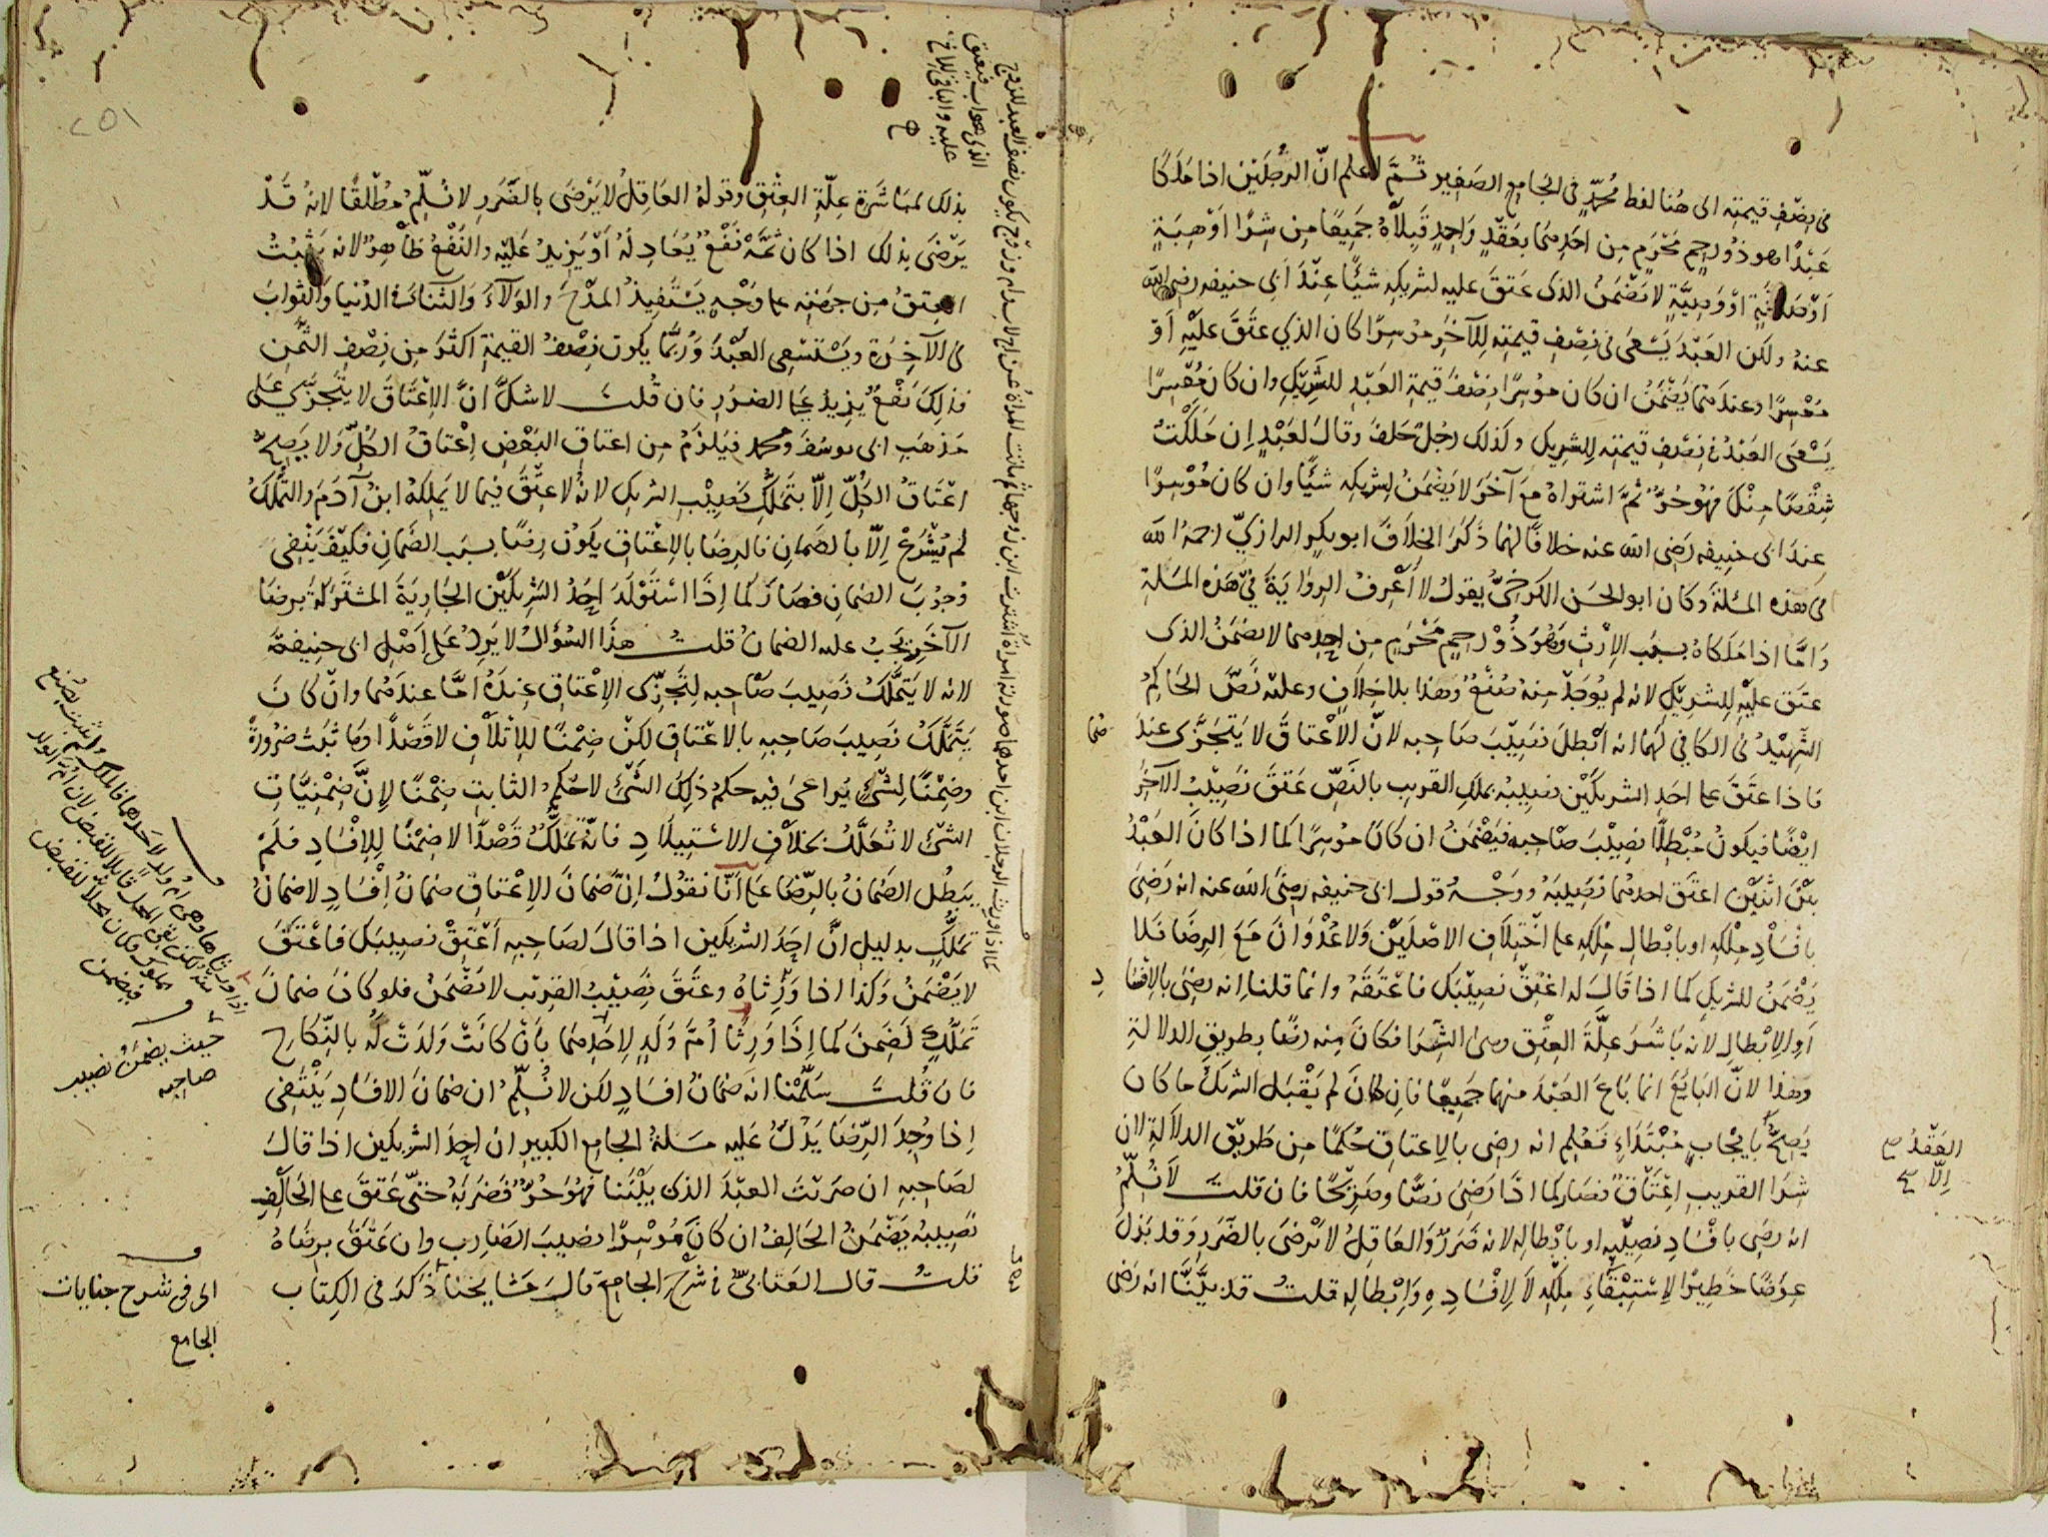 فى نصف قيمته الى هنا لفظ محمد فى الجامع الصغير ثم اعلم ان الرجلين اذا ملكا
عبدا هو ذو رحم محرم من احدهما بعقد واحد قبلاه جميعا من شرا او هبة
او صدقة او وصية لا يضمن الذى عتق عليه لشريكه شيئا عند ابى حنيفه رضى الله
عنه ولكن العبد يسعى فى نصف قيمته للآخر موسرا كان الذي عتق عليه او
معسرا وعندهما يضمن ان كان موسرا نصف قيمة العبد للشريك وان كان معسرا
يسعى العبد فى نصف قيمته للشريك وكذلك رجل حلف وقال لعبد ان ملكت
شقصا منك فهو حر ثم اشتراه مع آخر لا يضمن لشريكه شيئا وان كان موسرا
عند ابى حنيفه رضى الله عنه خلافا لهما ذكر الخلاف ابو بكر الرازي رحمه الله
فى هذه المسئلة وكان ابو الحسن الكرخي يقول لا اعرف الرواية في هذه المسلة
واما اذا ملكاه بسبب الارث وهو ذو رحم محرم من احدهما لا يضمن الذى
عتق عليه للشريك لانه لم يوجد منه صنع وهذا بلا خلاف وعليه نص الحاكم
الشهيد فى الكافي لهما انه ابطل نصيب صاحبه لان الاعتاق لا يتجزى عندهما
فاذا عتق على احد الشريكين نصيبه بملك القريب بالنص عتق نصيب الآخر
ايضا فيكون مبطلا نصيب صاحبه فيضمن ان كان موسرا كما اذا كان العبد
بين اثنين اعتق احدهما نصيبه ووجه قول ابى حنيفه رضى الله عنه انه رضى
بافساد ملكه او بابطال ملكه على اختلاف الاصلين ولا عدوان مع الرضا فلا
يضمن للشريك كما اذا قال له اعتق نصيبك فاعتقه وانما قلنا انه رضى بالافساد
او الابطال لانه باشر علة العتق وهى الشرا فكان منه رضا بطريق الدلالة
وهذا لان البايع انما باع العبد منهما جميعا فان كان لم يقبل الشريك ما كان
يصح بايجاب مبتداء فعلم انه رضى بالاعتاق حكما من طريق الدلالة لان
العقد
الا
شرا القريب اعتاق فصار كما اذا رضى نصا وصريحا فان قلت لا نسلم
انه رضى بافساد نصيبه او بابطاله لانه ضرر والعاقل لا يرضى بالضرر وقد بذل
عوضا خطيرا لاستبقاء ملكه لا لافساده وابطاله قلت قد بينا انه رضى
بذلك لمباشرة علة العتق وقوله العاقل لا يرضى بالضرر لا نسلم مطلقا لانه قد
يرضى بذلك اذا كان ثمة نفع يعادله او يزيد عليه والنفع ظاهر لانه يثبت
العتق من جهته على وجه يستفيد المدح والولآء والثناء فى الدنيا والثواب
فى الآخرة ويستسعى العبد وربما يكون نصف القيمة اكثر من نصف الثمن
فذلك نفع يزيد على الضرر فان قلت لا شك ان الاعتاق لا يتجزى على
مذهب ابى يوسف ومحمد فيلزم من اعتاق البعض اعتاق الكل ولا يصح
اعتاق الكل الا بتملك نصيب الشريك لانه لا عتق فيما لا يملكه ابن آدم والتملك
لم يشرع الا بالضمان فالرضا بالاعتاق يكون رضا بسبب الضمان فكيف ينفى
وجوب الضمان فصار كما اذا استولد احد الشريكين الجارية المشتركة برضا
الآخر يجب عليه الضمان قلت هذا السؤال لا يرد على اصل ابى حنيفة
لانه لا يتملك نصيب صاحبه لتجزى الاعتاق عنده اما عندهما وان كان
يتملك نصيب صاحبه بالاعتاق لكن ضمنا للاتلاف لا قصدا وما ثبت ضرورة
وضمنا لشئ يراعى فيه حكم ذلك الشئ لا حكم الثابت ضمنا لان ضمنيات
الشئ لا تعلل بخلاف الاستيلاد فانه تملك قصدا لا ضمنا للافساد فلم
يبطل الضمان بالرضا على انا نقول ان ضمان الاعتاق ضمان افساد لا ضمان
تملك بدليل ان احد الشريكين اذا قال لصاحبه اعتق نصيبك فاعتق
لا يضمن وكذا اذا ورثاه وعتق نصيب القريب لا يضمن فلو كان ضمان
تملك لضمن كما اذا ورثا ام ولد لاحدهما بان كانت ولدت له بالنكاح
فان قلت سلمنا انه ضمان افساد لكن لا نسلم ان ضمان الافساد ينتفى
اذا وجد الرضا يدل عليه مسلة الجامع الكبير ان احد الشريكين اذا قال
لصاحبه ان ضربت العبد الذى بيننا فهو حر فضربه حتى عتق على الحالف
نصيبه يضمن الحالف ان كان موسرا نصيب الضارب وان عتق برضاه
قلت قال العتابى فى شرح الجامع قال مشايخنا ذكر فى الكتاب
حيث يضمن نصيب
صاحبه
الى فى شرح جنايات
الجامع